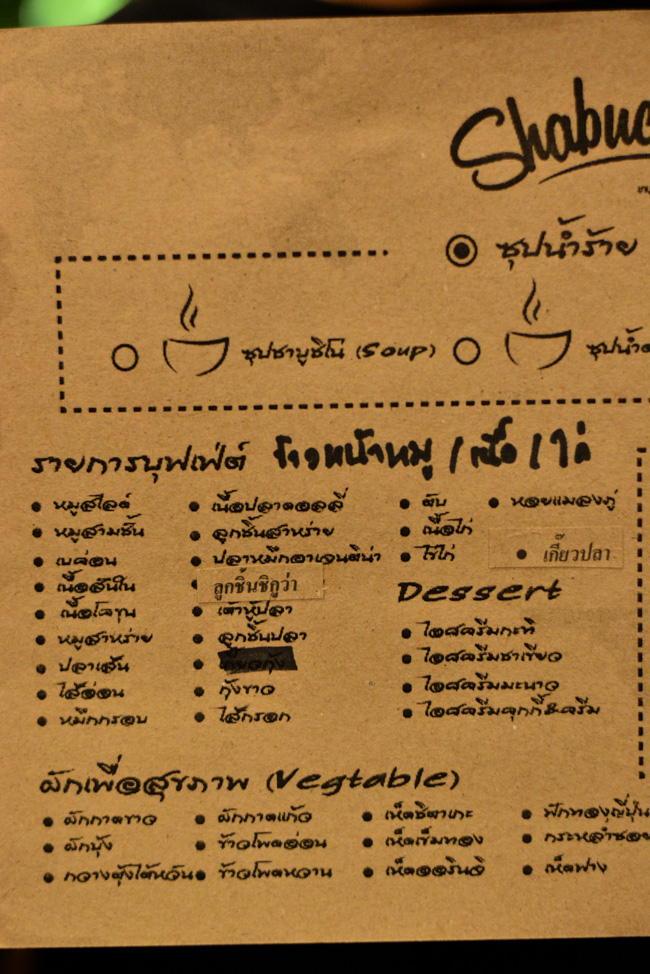 ซุปน้ำร้าย
ซุปชาบูชิโน่ (Soup)
รายการบุฟเฟ่ต์ ข้าวหน้าหมู / เนื้อ / ไก่
หมูสไลด์
หมูสามชั้น
เบค่อน
เนื้อสันใน
เนื้อโคขุน
หมูสาหร่าย
ปลาเส้น
ไส้อ่อน
หมึกกรอบ
เนื้อปลาดอลลี่
ลูกชิ้นสาหร่าย
ปลาหมึกอาเจนติน่า
ลูกชิ้นชิกูว่า
เต้าหู้ปลา
ลูกชิ้นปลา
เกี๊ยวกุ้ง
กุ้งขาว
ไส้กรอก
ตับ
เนื้อไก่
ไข่ไก่
หอยแมลงภู่
เกี๊ยวปลา
Dessert
ไอศครีมกะทิ
ไอศครีมชาเขียว
ไอศครีมมะนาว
ไอศครีมคุกกี้&ครีม
ผักเพื่อสุขภาพ (Vegtable)
ผักกาดขาว
ผักบุ้ง
กวางตุ้งไต้หวัน
ผักกาดแก้ว
ข้าวโพดอ่อน
ข้าวโพดหวาน
เห็ดชิตาเกะ
เห็ดเข็มทอง
เห็ดออรินจิ
ฟักทองญี่ปุ่น
กระหล่ำซอย
เห็ดฟาง